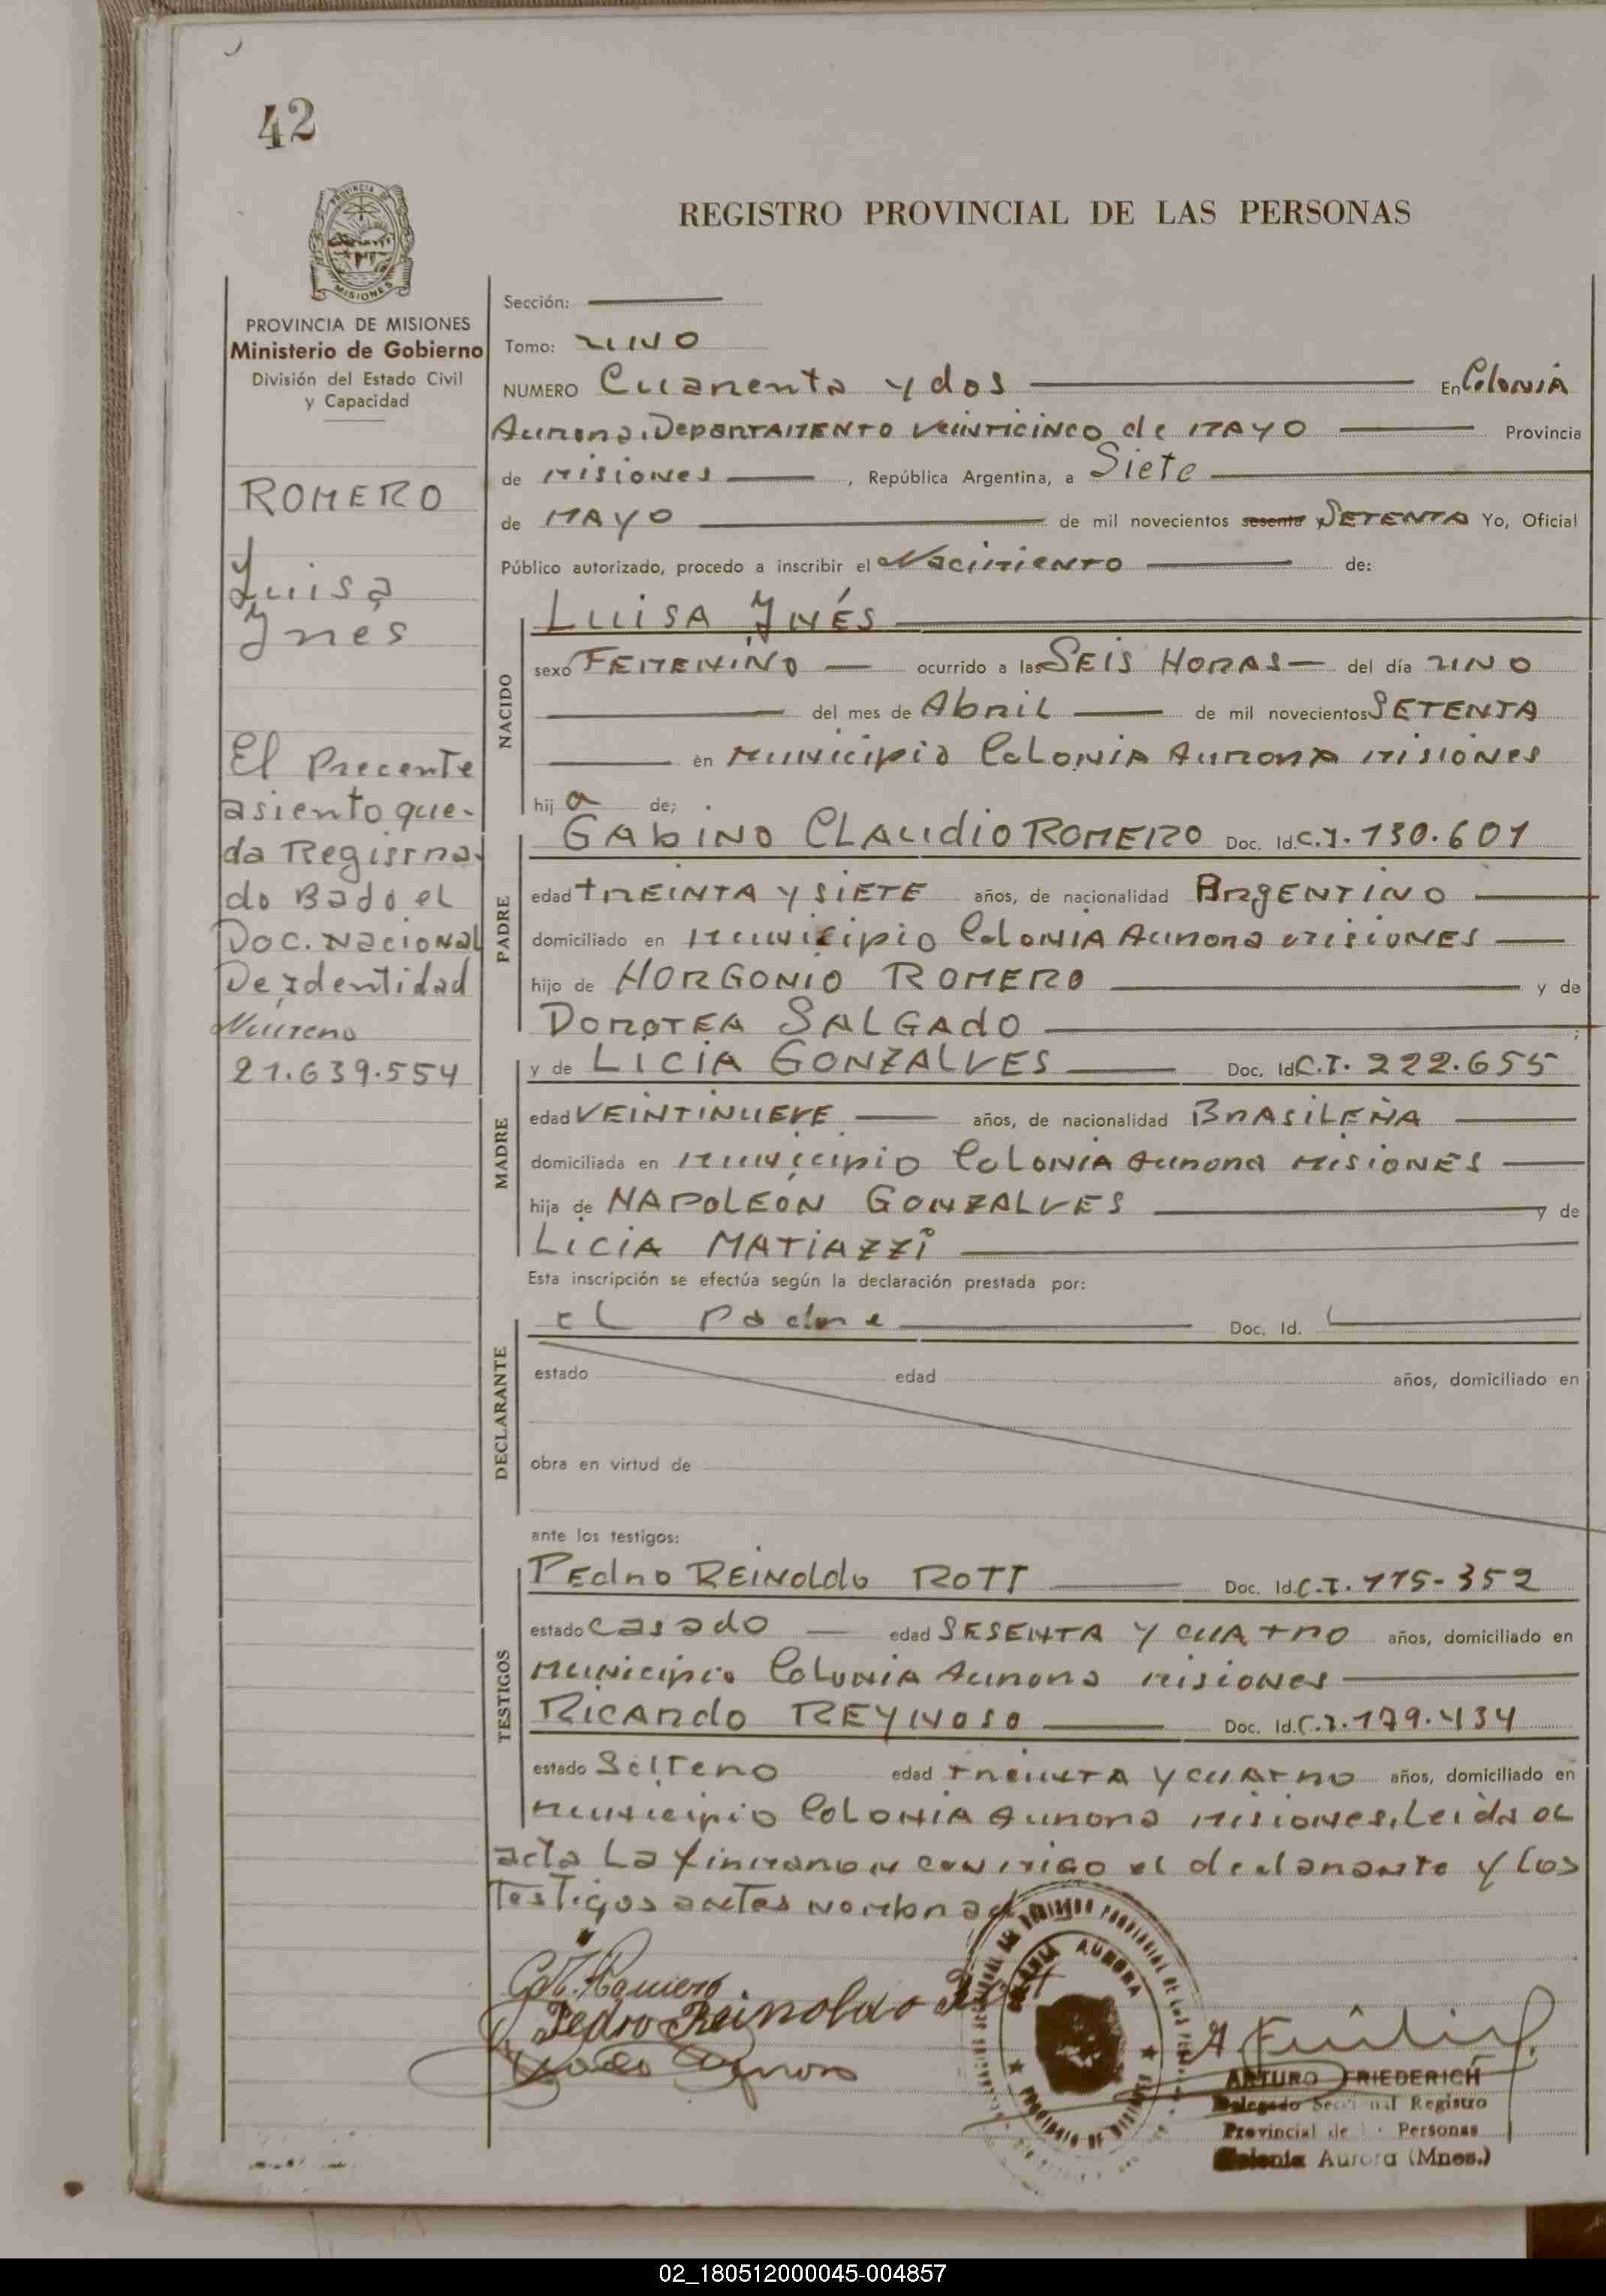 42
PROVINCIA DE
MISIONES
PROVINCIA DE MISIONES
Ministerio de Gobierno
División del Estado Civil
y Capacidad
ROMERO
Luisa
Ynés
El Precente
asiento que-
da Registra-
do Bado el
Doc. Nacional
De Identidad
Numero
21.639.554
REGISTRO PROVINCIAL DE LAS PERSONAS
Sección:
Tomo: UNO
NUMERO Cuarenta y dos En Colonia
Aurora. Departamento Veinticinco de MAYO Provincia
de Misiones , República Argentina, a Siete
de MAYO de mil novecientos sesenta y SETENTA Yo, Oficial
Público autorizado, procedo a inscribir el Nacimiento de:
NACIDO
LUISA YNÉS
sexo FEMENINO ocurrido a las SEIS HORAS del día UNO
del mes de Abril de mil novecientos SETENTA
en Municipio Colonia Aurora Misiones
hij a de;
PADRE
GABINO CLAUDIO ROMERO Doc. Id. C.I. 130.601
edad TREINTA Y SIETE años, de nacionalidad ARGENTINO
domiciliado en Municipio Colonia Aurora Misiones
hijo de HORGONIO ROMERO y de
DOROTEA SALGADO ;
MADRE
y de LICIA GONZALVES Doc. Id C.I. 222.655
edad VEINTINUEVE años, de nacionalidad BRASILEÑA
domiciliada en Municipio Colonia Aurora Misiones
hija de NAPOLEÓN GONZALVES y de
LICIA MATIAZZI
Esta inscripción se efectúa según la declaración prestada por:
DECLARANTE
el Padre Doc. Id.
estado edad años, domiciliado en
obra en virtud de
ante los testigos:
TESTIGOS
Pedro REINOLDO ROTT Doc. Id. C.I. 115-352
estado casado edad SESENTA Y CUATRO años, domiciliado en
Municipio Colonia Aurora Misiones
RICARDO REYNOSO Doc. Id. C.I. 179.434
estado Soltero edad TREINTA Y CUATRO años, domiciliado en
Municipio Colonia Aurora Misiones. Leida el
acta La firmaron conmigo el declarante y los
Testigos antes nombrad
G. Romero
Pedro Reinoldo Rott
COLONIA AURORA
ARTURO FRIEDERICH
Delegado Seccional Registro
Provincial de Personas
Colonia Aurora (Mnes.)
02_180512000045-004857